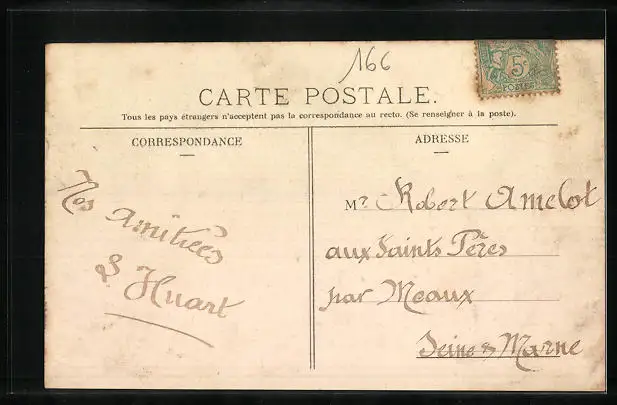 166
5c
POSTES
CARTE POSTALE.
Tous les pays étrangers n'acceptent pas la correspondance au recto. (Se renseigner à la poste).
CORRESPONDANCE
ADRESSE
Nos Amitiées
L Huart
Mr Robert Amelot
aux Saints Pères
par Meaux
Seine & Marne